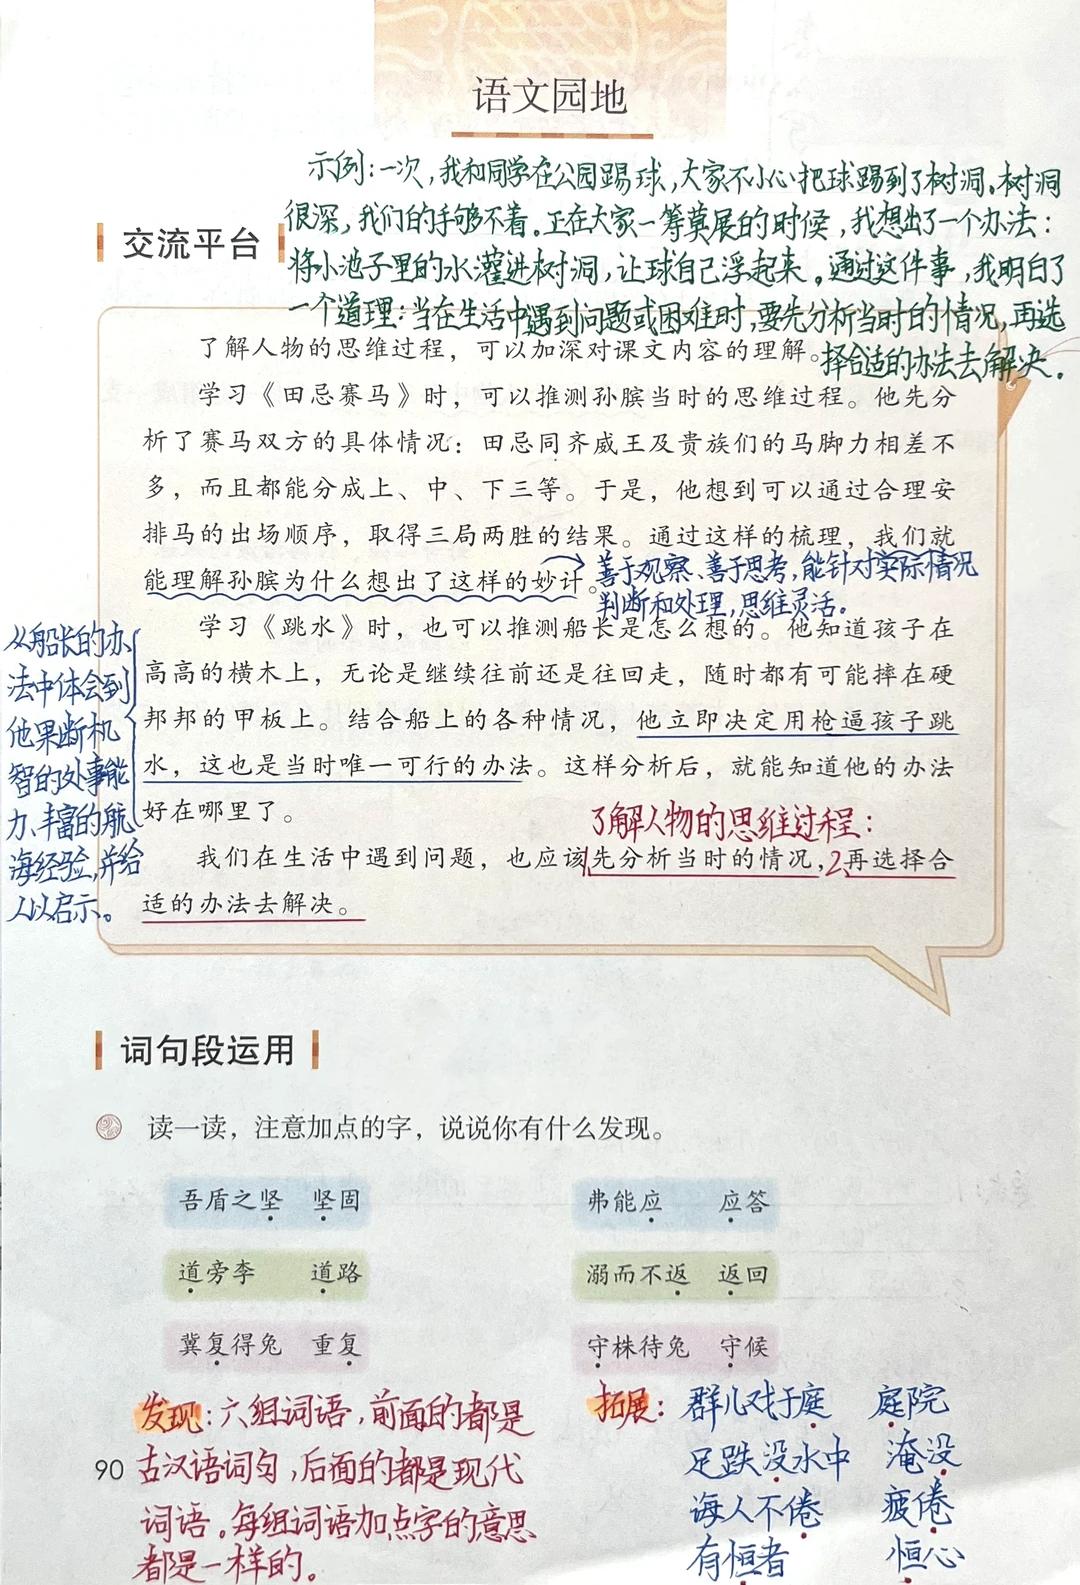 语文园地
示例:一次,我和同学在公园踢球,大家不小心把球踢到了树洞。树洞
很深,我们的手够不着。正在大家一筹莫展的时候,我想出了一个办法:
将小池子里的水灌进树洞,让球自己浮起来。通过这件事,我明白了
一个道理:当在生活中遇到问题或困难时,要先分析当时的情况,再选
择合适的办法去解决。
交流平台
了解人物的思维过程,可以加深对课文内容的理解。
学习《田忌赛马》时,可以推测孙膑当时的思维过程。他先分
析了赛马双方的具体情况:田忌同齐威王及贵族们的马脚力相差不
多,而且都能分成上、中、下三等。于是,他想到可以通过合理安
排马的出场顺序,取得三局两胜的结果。通过这样的梳理,我们就
能理解孙膑为什么想出了这样的妙计。
善于观察、善于思考,能针对实际情况
判断和处理,思维灵活。
学习《跳水》时,也可以推测船长是怎么想的。他知道孩子在
高高的横木上,无论是继续往前还是往回走,随时都有可能摔在硬
邦邦的甲板上。结合船上的各种情况,他立即决定用枪逼孩子跳
水,这也是当时唯一可行的办法。这样分析后,就能知道他的办法
好在哪里了。
从船长的办
法中体会到
他果断机
智的处事能
力、丰富的航
海经验,并给
人以启示。
了解人物的思维过程:
我们在生活中遇到问题,也应该1.先分析当时的情况,2.再选择合
适的办法去解决。
词句段运用
读一读,注意加点的字,说说你有什么发现。
吾盾之坚 坚固 弗能应 应答
道旁李 道路 溺而不返 返回
冀复得兔 重复 守株待兔 守候
发现:六组词语,前面的都是
古汉语词句,后面的都是现代
词语。每组词语加点字的意思
都是一样的。
拓展:群儿戏于庭 庭院
足跌没水中 淹没
诲人不倦 疲倦
有恒者 恒心
90